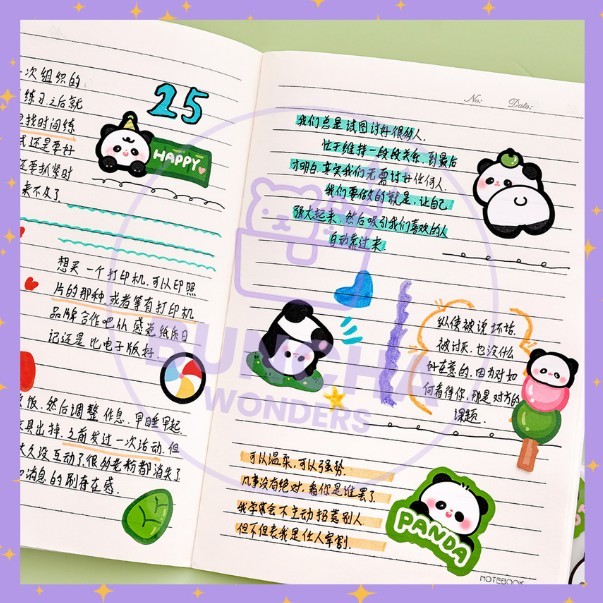 次组织的
练习之后就
找时间练
式还是要好
还要抓紧时
来不及了
25
HAPPY
想买一个打印机,可以印照
片的那种,或者等有打印机
品牌合作吧,纸质日
记还是比电子版好
饭,然后调整作息,早睡早起
出掉,之前发过一次活动,但
大久没互动了很多老粉都消失了
消息的刷存在感.
No:
Date:
我们总是试图讨好很多人,
忙于维持一段段关系,到最后
才明白,其实我们无需讨好任何人.
我们要做的就是,让自己
强大起来,然后吸引我们喜欢的人
自动靠过来.
纵使被说坏话,
被讨厌,也没什么
好在意的,因为对如
何看待你,那是对方的
课题.
可以温柔,可以强势.
凡事没有绝对,看你是谁罢了
我虽不会主动招惹别人
但不代表我是任人宰割.
PANDA
NOTEBOOK
BUNCHA
WONDERS